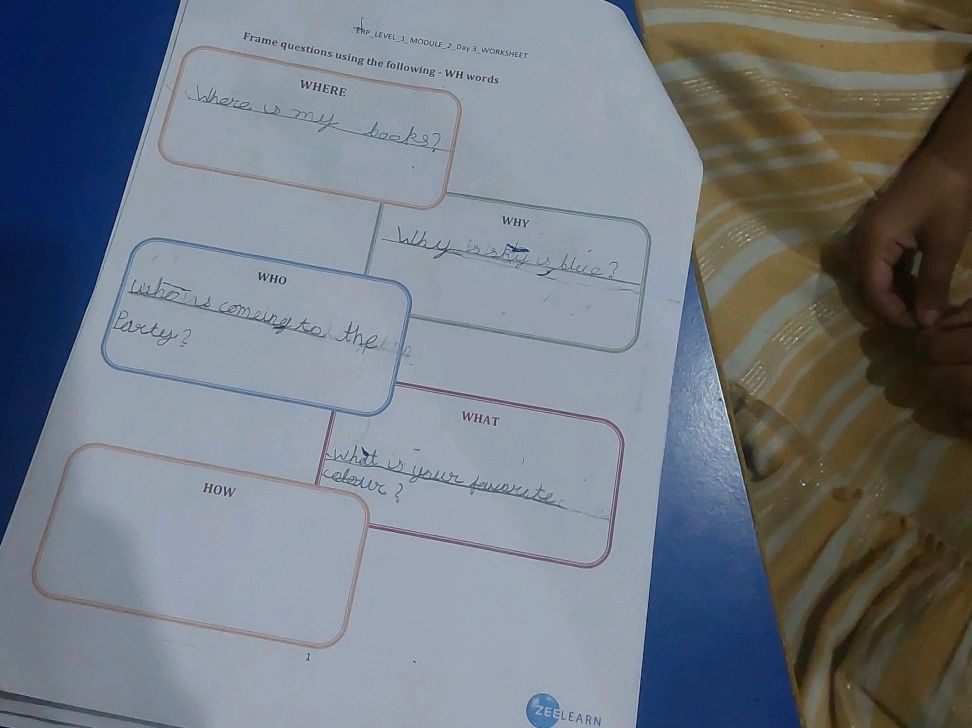 ERP_LEVEL_1_MODULE_2_Day 3_WORKSHEET
Frame questions using the following - WH words
WHERE
Where is my books?
WHY
Why is sky is blue?
WHO
who is comeing to the
Party?
WHAT
What is your favorite
colour?
HOW
1
ZEELEARN